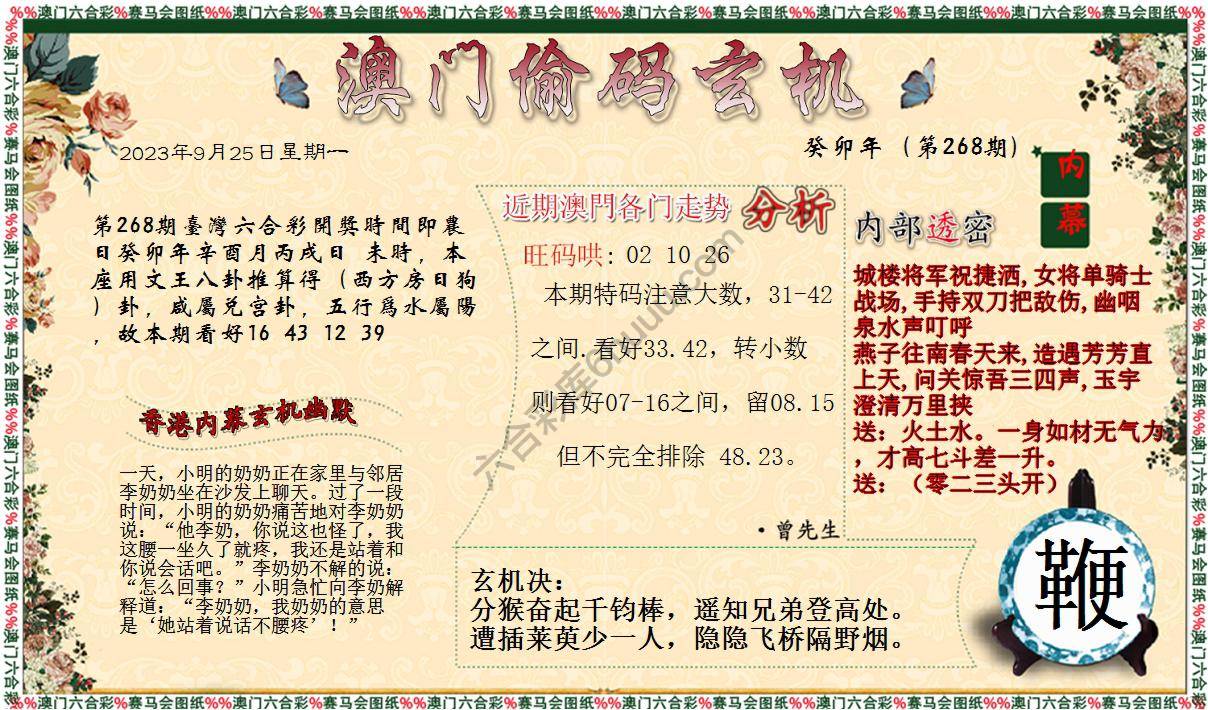 %%澳门六合彩%赛马会图纸%%澳门六合彩%赛马会图纸%%澳门六合彩%赛马会图纸%%澳门六合彩%赛马会图纸%%澳门六合彩%赛马会图纸%%澳门六合彩%赛马会图纸%%
澳门偷码玄机
2023年9月25日星期一
癸卯年（第268期）
第268期臺灣六合彩開獎時間即農
日癸卯年辛酉月丙戌日 未時，本
座用文王八卦推算得（西方房日狗
）卦，咸屬兑宫卦，五行爲水屬陽
，故本期看好16 43 12 39
香港内幕玄机幽默
一天，小明的奶奶正在家里与邻居
李奶奶坐在沙发上聊天。过了一段
时间，小明的奶奶痛苦地对李奶奶
说：“他李奶，你说这也怪了，我
这腰一坐久了就疼，我还是站着和
你说会话吧。”李奶奶不解的说：
“怎么回事？”小明急忙向李奶解
释道：“李奶奶，我奶奶的意思
是‘她站着说话不腰疼’！”
近期澳門各门走势 分析
旺码哄: 02 10 26
本期特码注意大数，31-42
之间.看好33.42，转小数
则看好07-16之间，留08.15
但不完全排除 48.23。
·曾先生
玄机决：
分猴奋起千钧棒，遥知兄弟登高处。
遭插莱萸少一人，隐隐飞桥隔野烟。
内幕
内部透密
城楼将军祝捷洒,女将单骑士
战场,手持双刀把敌伤,幽咽
泉水声叮呼
燕子往南春天来,造遇芳芳直
上天,问关惊吾三四声,玉宇
澄清万里挟
送：火土水。一身如材无气力
，才高七斗差一升。
送：（零二三头开）
鞭
六合彩库6huuu.com
%%澳门六合彩%赛马会图纸%%澳门六合彩%赛马会图纸%%澳门六合彩%赛马会图纸%%澳门六合彩%赛马会图纸%%澳门六合彩%赛马会图纸%%澳门六合彩%赛马会图纸%%